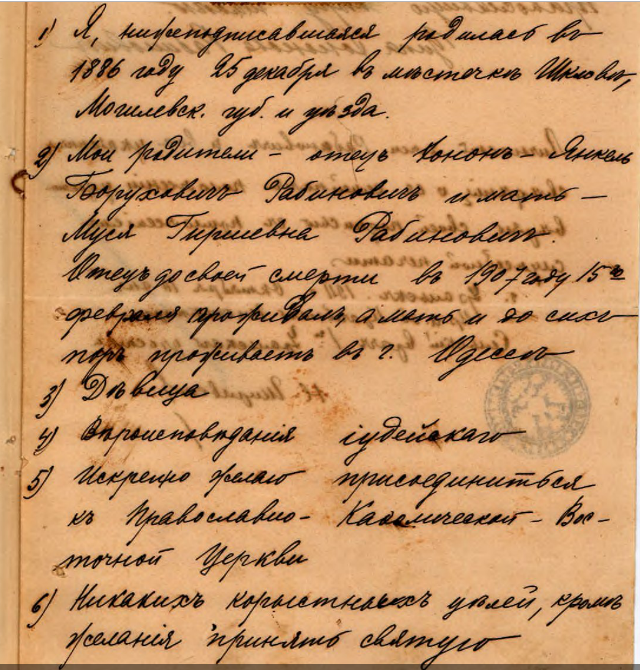 1) Я, нижеподписавшаяся родилась въ
1886 году 25 декабря въ мѣстечкѣ Шкловѣ,
Могилевск. губ. и уѣзда.
2) Мои родители – отецъ Хононъ – Янкель
Боруховичъ Рабиновичъ и мать –
Муся Гиршевна Рабиновичъ.
Отецъ до своей смерти въ 1907 году 15го
февраля проживалъ, а мать и до сихъ
поръ проживаетъ въ г. Одессѣ
3) Дѣвица
4) Вѣроисповѣданія іудейскаго
5) Искренно желаю присоединиться
къ Православно – Каѳолической – Вос-
точной Церкви
6) Никакихъ корыстныхъ цѣлей, кромѣ
желанія принять святую